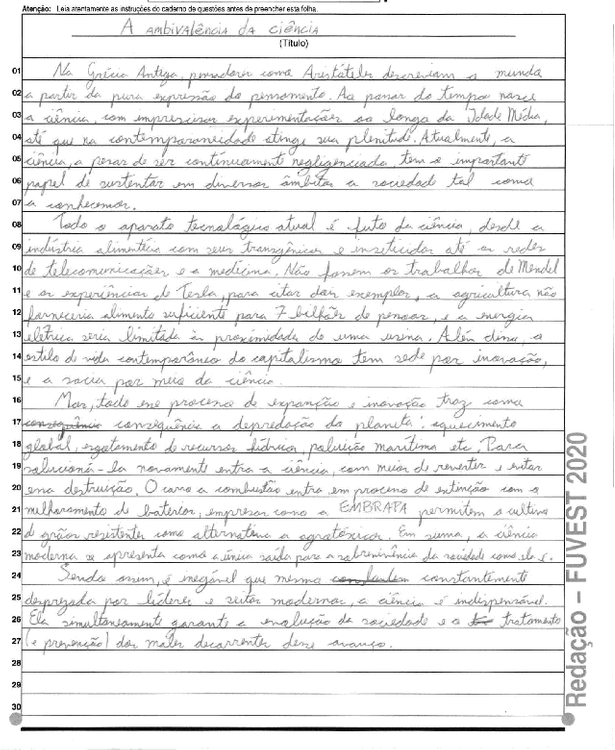 Atenção: Leia atentamente as instruções do caderno de questões antes de preencher esta folha.
A AMBIVALÊNCIA DA CIÊNCIA
(Título)
01 Na Grécia Antiga, pensadores como Aristóteles descreviam o mundo
02 a partir da pura expressão do pensamento. Ao passar do tempo nasce
03 a ciência, com imprecisas experimentações ao longo da Idade Média,
04 até que na contemporaneidade atinge sua plenitude. Atualmente, a
05 ciência, a pesar de ser continuamente negligenciada tem o importante
06 papel de sustentar em diversos âmbitos a sociedade tal como
07 a conhecemos.
08 Todo o aparato tecnológico atual é futo da ciência, desde a
09 indústria alimentícia com seus transgênicos e inseticidas até as redes
10 de telecomunicações e a medicina. Não fossem os trabalhos de Mendel
11 e as experiências de Tesla, para citar dois exemplos, a agricultura não
12 forneceria alimento suficiente para 7 bilhões de pessoas, e a energia
13 elétrica seria limitada às proximidades de uma usina. Além disso, o
14 estilo de vida contemporâneo do capitalismo tem sede por inovação,
15 e a sacia por meio da ciência.
16 Mas, todo esse processo de expansão e inovação traz como
17 consequência a depredação do planeta: aquecimento
18 global, esgotamento de recursos hídricos, poluição marítima etc. Para
19 solucioná-la novamente entra a ciência, com meios de reverter e evitar
20 essa destruição. O carro a combustão entra em processo de extinção com o
21 melhoramento de baterias, empresas como a EMBRAPA permitem o cultivo
22 de grãos resistentes como alternativa a agrotóxicos. Em suma, a ciência
23 moderna se apresenta como a única saída para a sobrevivência da sociedade como ela é.
24 Sendo assim, é inegável que mesmo constantemente
25 desprezada por líderes e seitas modernas, a ciência é indispensável.
26 Ela simultaneamente garante a evolução da sociedade e o tratamento
27 (e prevenção) dos males decorrentes desse avanço.
28
29
30
Redação – FUVEST 2020